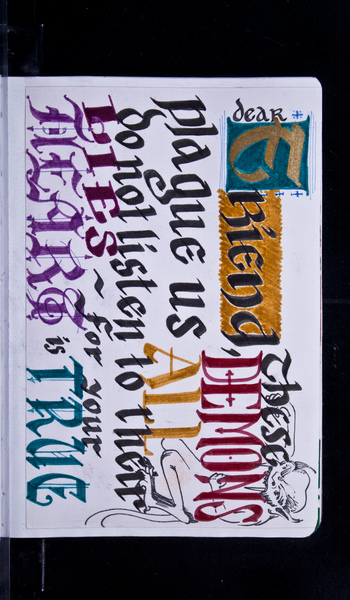 dear
Friend, these
DEMONS
plague us ALL
do not listen to their
LIES ~ for your
HEART is TRUE